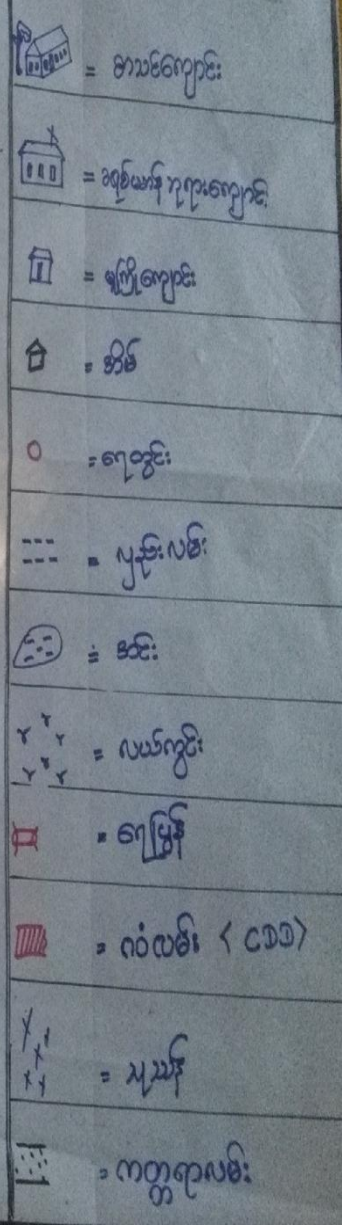 = စာသင်ကျောင်း
= ခရစ်ယာန်ဘုရားကျောင်း
= မူကြိုကျောင်း
= အိမ်
= ရေတွင်း
= လှည်းလမ်း
= အင်း
= လယ်ကွင်း
= ရေပြွန်
= ဂဝံလမ်း < CDD >
= သုသာန်
= ကတ္တရာလမ်း